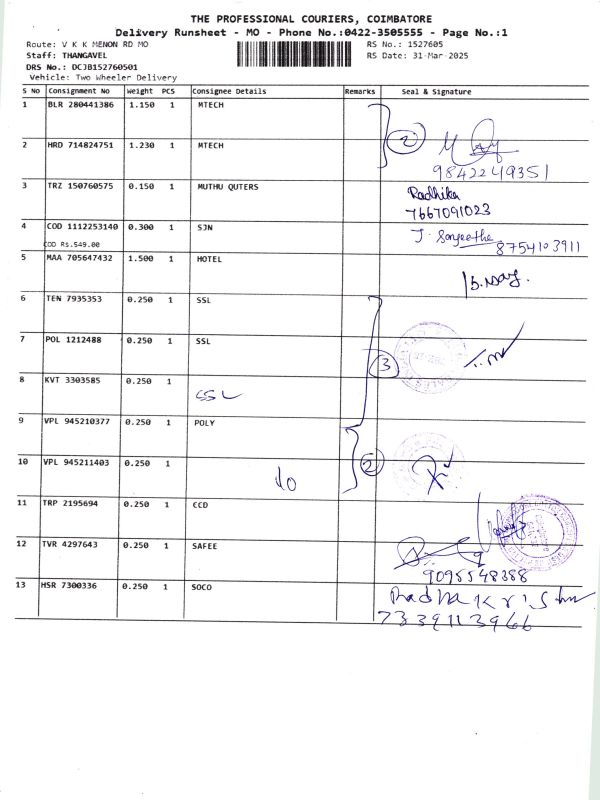 THE PROFESSIONAL COURIERS, COIMBATORE
Delivery Runsheet - MO - Phone No.:0422-3505555 - Page No.:1
Route: V K K MENON RD MO
RS No.: 1527605
Staff: THANGAVEL
RS Date: 31-Mar-2025
DRS No.: DCJB152760501
Vehicle: Two Wheeler Delivery
S No Consignment No Weight PCS Consignee Details Remarks Seal & Signature
1 BLR 280441386 1.150 1 MTECH
2
2 HRD 714824751 1.230 1 MTECH
9842249351
3 TRZ 150760575 0.150 1 MUTHU QUTERS
Radhika
7667091023
4 COD 1112253140 0.300 1 SJN
COD Rs.549.00
J. Sanjeetha
8754103911
5 MAA 705647432 1.500 1 HOTEL
6 TEN 7935353 0.250 1 SSL
7 POL 1212488 0.250 1 SSL
3
8 KVT 3303585 0.250 1
SSL
9 VPL 945210377 0.250 1 POLY
2
10 VPL 945211403 0.250 1
do
11 TRP 2195694 0.250 1 CCD
12 TVR 4297643 0.250 1 SAFEE
9095548388
13 HSR 7300336 0.250 1 SOCO
Radha Krishn
7339113966